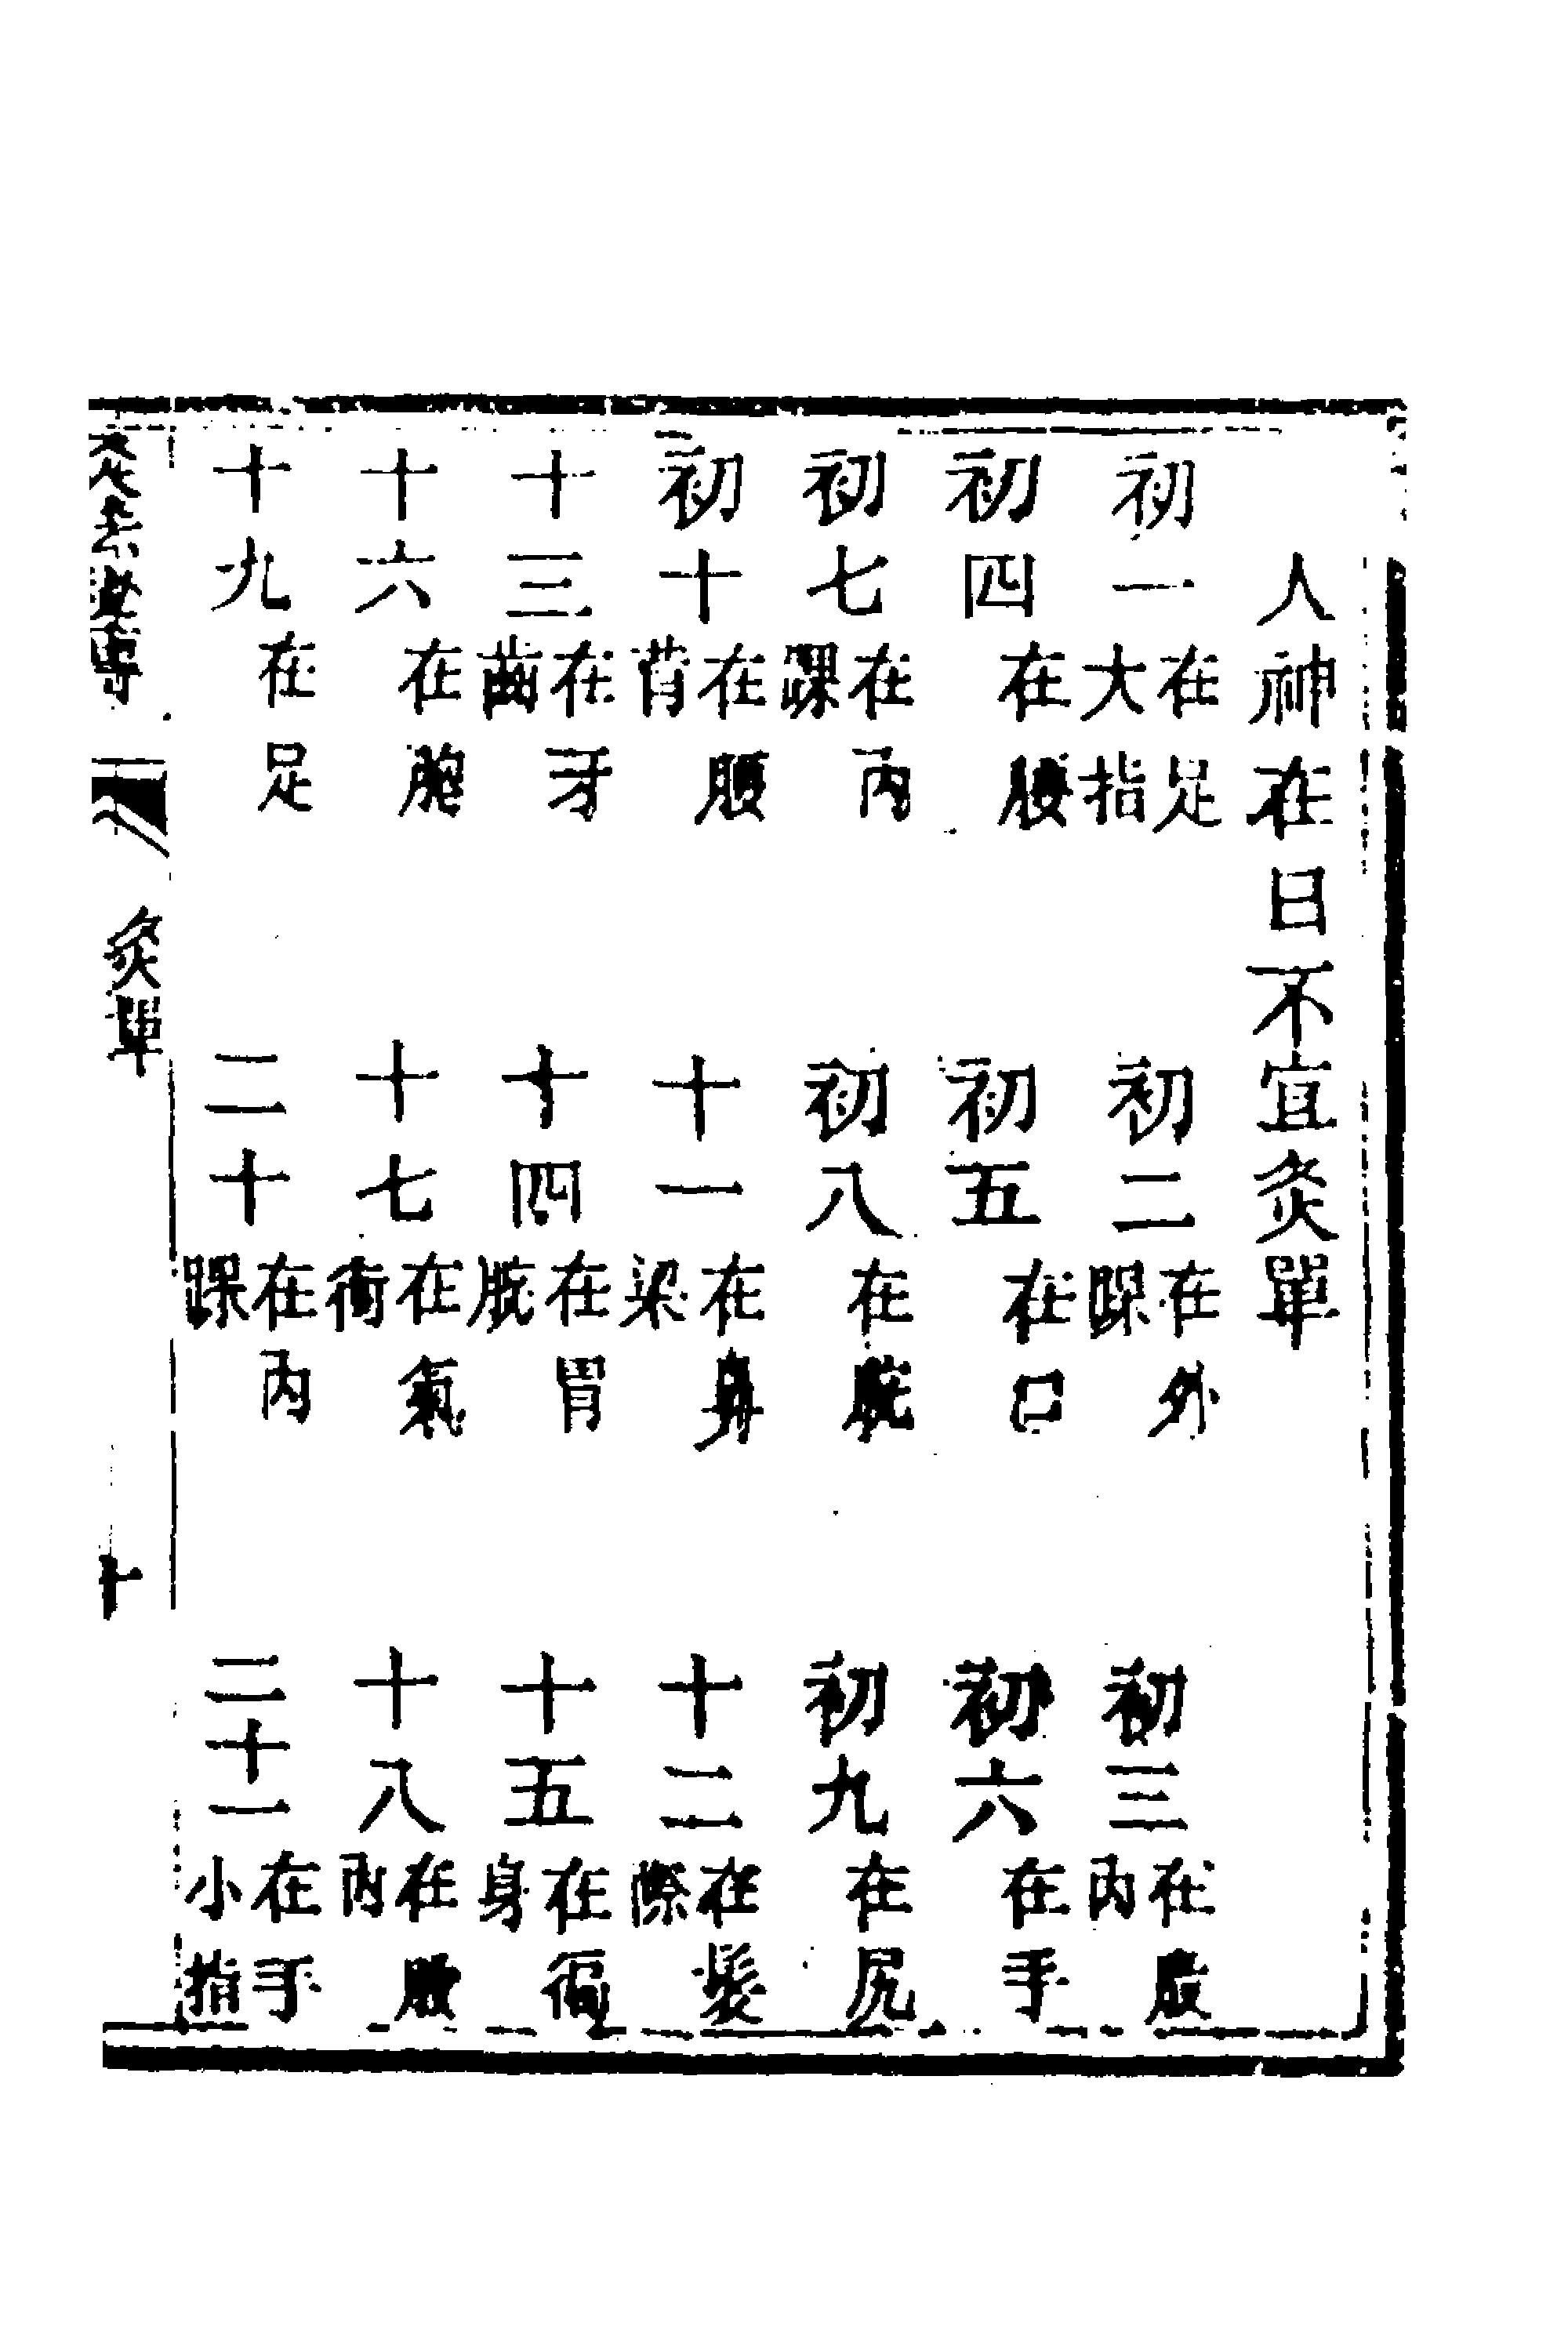 人神在日不宜灸單
初一在足大指 初二在外踝 初三在股內
初四在腰 初五在口 初六在手
初七在內踝 初八在脘 初九在尻
初十在腰背 十一在鼻梁 十二在髮際
十三在牙齒 十四在胃脘 十五在徧身
十六在胸 十七在氣衝 十八在股內
十九在足 二十在內踝 二十一在手小指
灸單
十